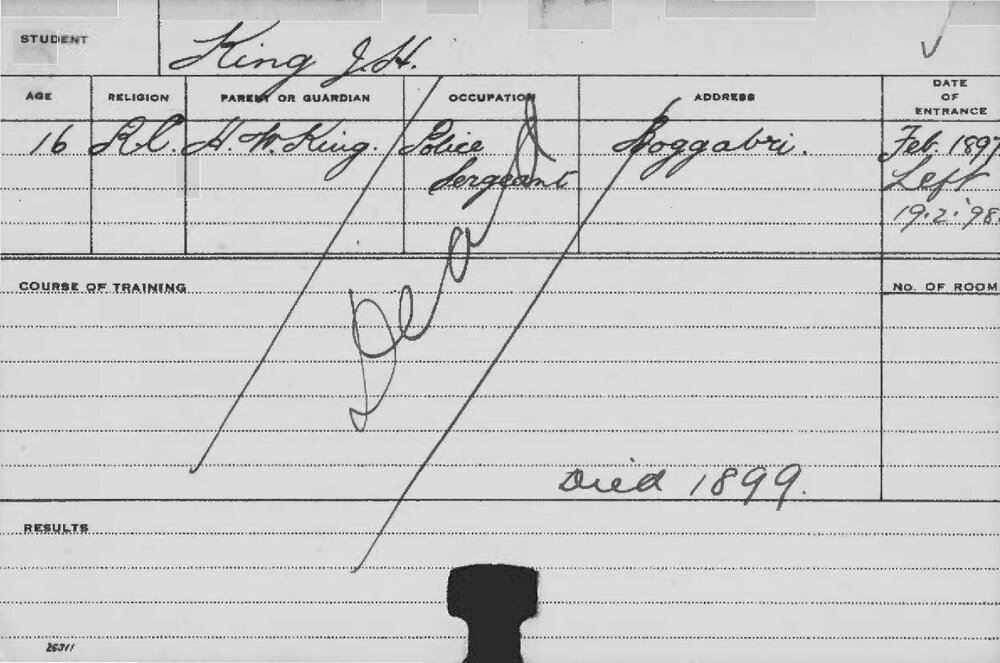 STUDENT King J.H.
AGE RELIGION PARENT OR GUARDIAN OCCUPATION ADDRESS DATE OF ENTRANCE
16 R.C. H. W. King. Police Sergeant Boggabri. Feb. 1897
Left
19.2.'98.
Dead
COURSE OF TRAINING No. OF ROOM
Died 1899.
RESULTS